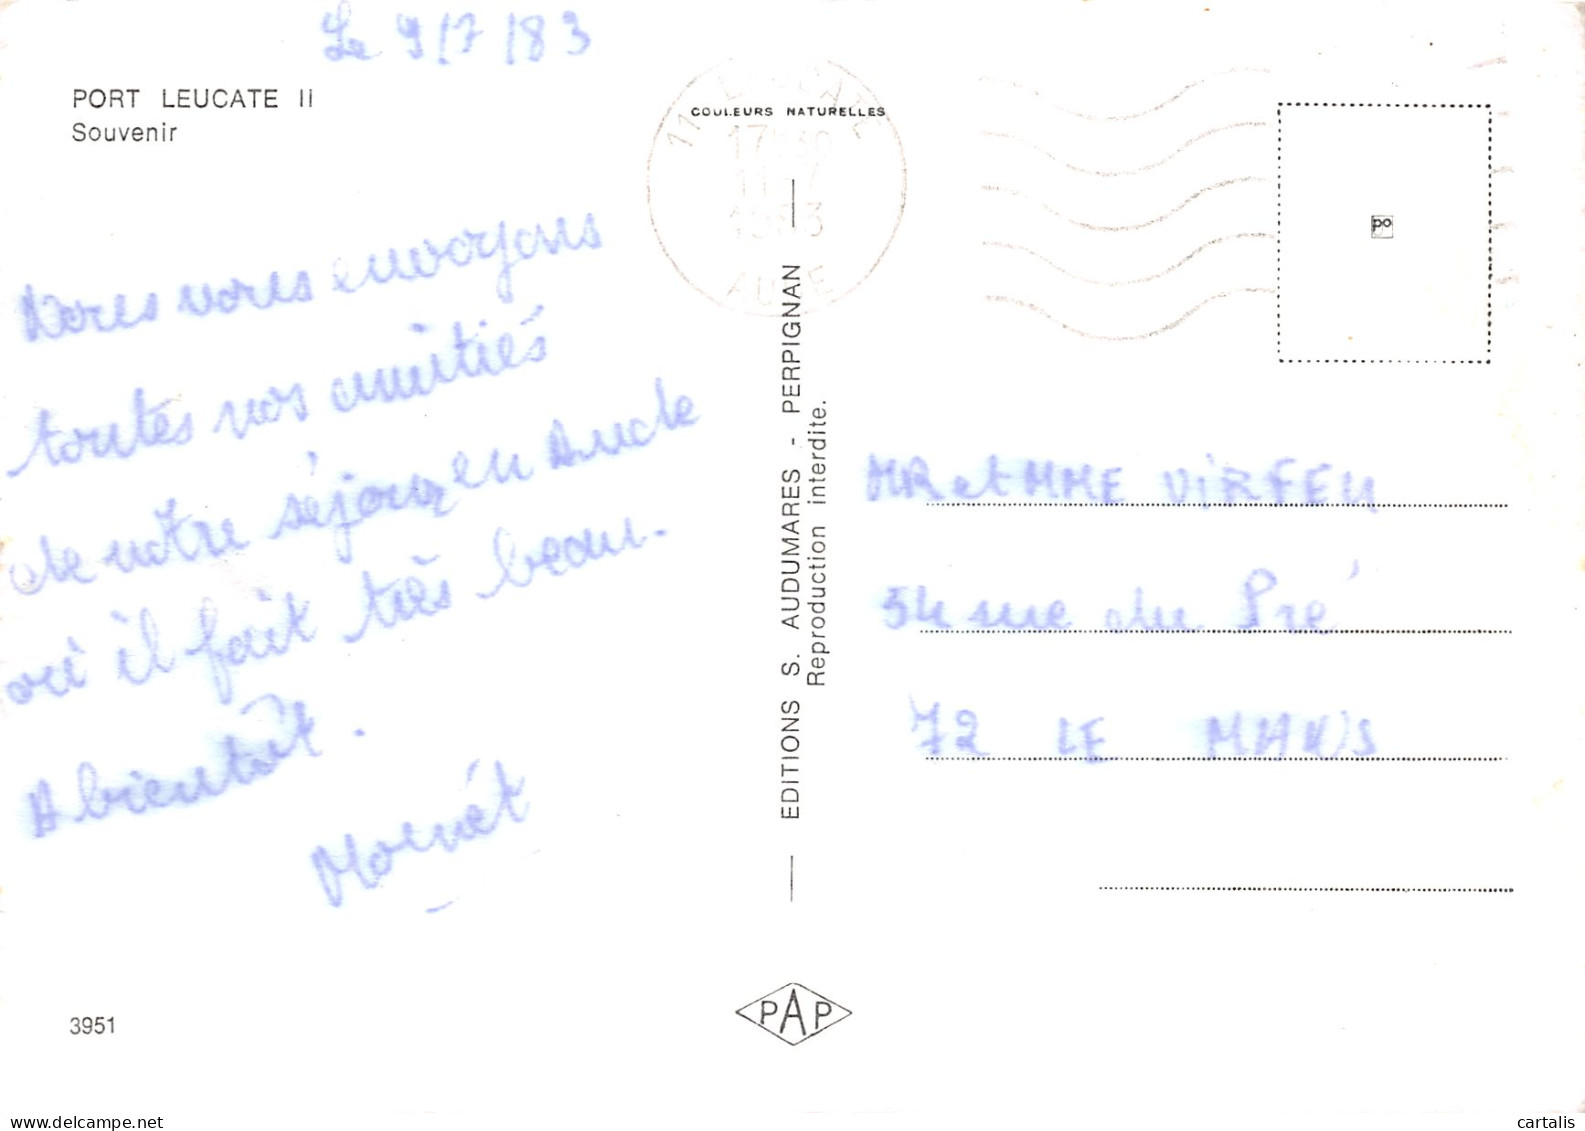 Le 9/7/83
PORT LEUCATE II
Souvenir
Nous vous envoyons
toutes nos amitiés
de notre séjour en Aude
où il fait très beau.
A bientôt.
3951
COULEURS NATURELLES
11 LEUCATE
17H30
11-7
1983
AUDE
EDITIONS S. AUDUMARES - PERPIGNAN
Reproduction interdite.
PAP
po
MR et MME VIRFEU
54 rue du Pré
72 LE MANS
cartalis
www.delcampe.net